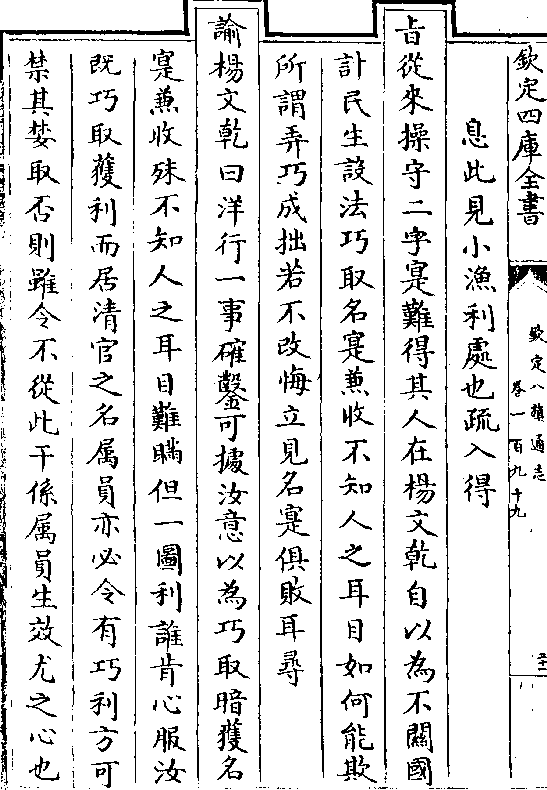 欽定四庫全書
欽定八旗通志
卷一百九十九
息此見小漁利處也疏入得
旨從來操守二字寔難得其人在楊文乾自以為不關國
計民生設法巧取名寔兼收不知人之耳目如何能欺
所謂弄巧成拙若不改悔立見名寔俱敗耳尋
諭楊文乾曰洋行一事確鑿可據汝意以為巧取暗獲名
寔兼收殊不知人之耳目難瞞但一圖利誰肯心服汝
既巧取獲利而居清官之名属員亦必令有巧利方可
禁其婪取否則雖令不從此干係属員生效尤之心也